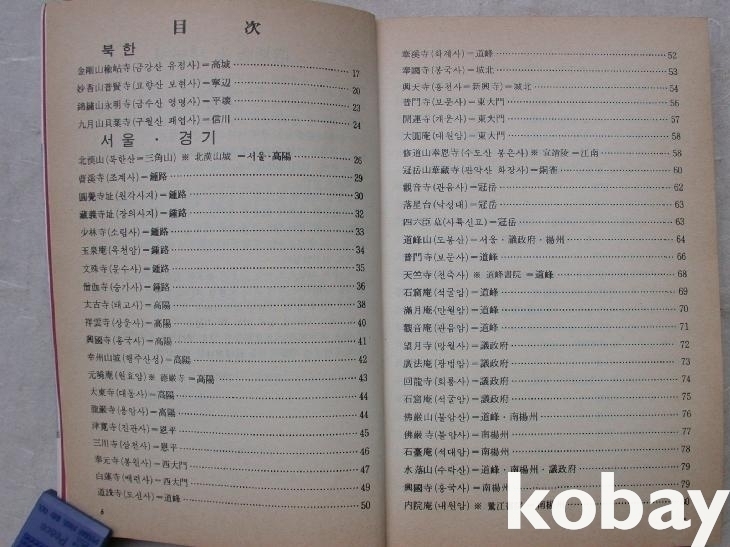 目 次
북한
金剛山楡岾寺(금강산 유점사)=高城 17
妙香山普賢寺(묘향산 보현사)=寧辺 20
錦繡山永明寺(금수산 영명사)=平壌 23
九月山貝葉寺(구월산 패엽사)=信川 24
서울 · 경기
北漢山(북한산=三角山) ※ 北漢山城=서울·高陽 26
曹溪寺(조계사)=鍾路 29
圓覺寺址(원각사지)=鍾路 31
藏義寺址(장의사지)=鍾路 32
少林寺(소림사)=鍾路 33
玉泉庵(옥천암)=鍾路 34
文殊寺(문수사)=鍾路 35
僧伽寺(승가사)=鍾路 36
太古寺(태고사)=高陽 38
祥雲寺(상운사)=高陽 40
興國寺(흥국사)=高陽 41
幸州山城(행주산성)=高陽 42
元曉庵(원효암)※ 德巖寺=高陽 43
大東寺(대동사)=高陽 44
龍巖寺(용암사)=高陽 44
津寬寺(진관사)=恩平 45
三川寺(삼천사)=恩平 46
奉元寺(봉원사)=西大門 47
白蓮寺(백련사)=西大門 49
道詵寺(도선사)=道峰 50
6
華溪寺(화계사)=道峰 52
奉國寺(봉국사)=城北 53
興天寺(흥천사=新興寺)=城北 54
普門寺(보문사)=東大門 56
開運寺(개운사)=東大門 57
大圓庵(대원암)=東大門 58
修道山奉恩寺(수도산 봉은사)※ 宣靖陵=江南 58
冠岳山華藏寺(관악산 화장사)=銅雀 60
觀音寺(관음사)=冠岳 62
落星台(낙성대)=冠岳 63
四六臣墓(사륙신묘)=冠岳 63
道峰山(도봉산)=서울·議政府·楊州 64
普門寺(보문사)=道峰 66
天竺寺(천축사)※ 道峰書院=道峰 68
石窟庵(석굴암)=道峰 69
滿月庵(만월암)=道峰 70
觀音庵(관음암)=道峰 71
望月寺(망월사)=議政府 72
廣法庵(광법암)=議政府 73
回龍寺(회룡사)=議政府 74
石窟庵(석굴암)=議政府 75
佛巖山(불암산)=道峰·南楊州 76
佛巖寺(불암사)=南楊州 77
石臺庵(석대암)=南楊州 78
水落山(수락산)=道峰·南楊州·議政府 79
興國寺(흥국사)=南楊州 79
内院庵(내원암)※ 鷲
kobay